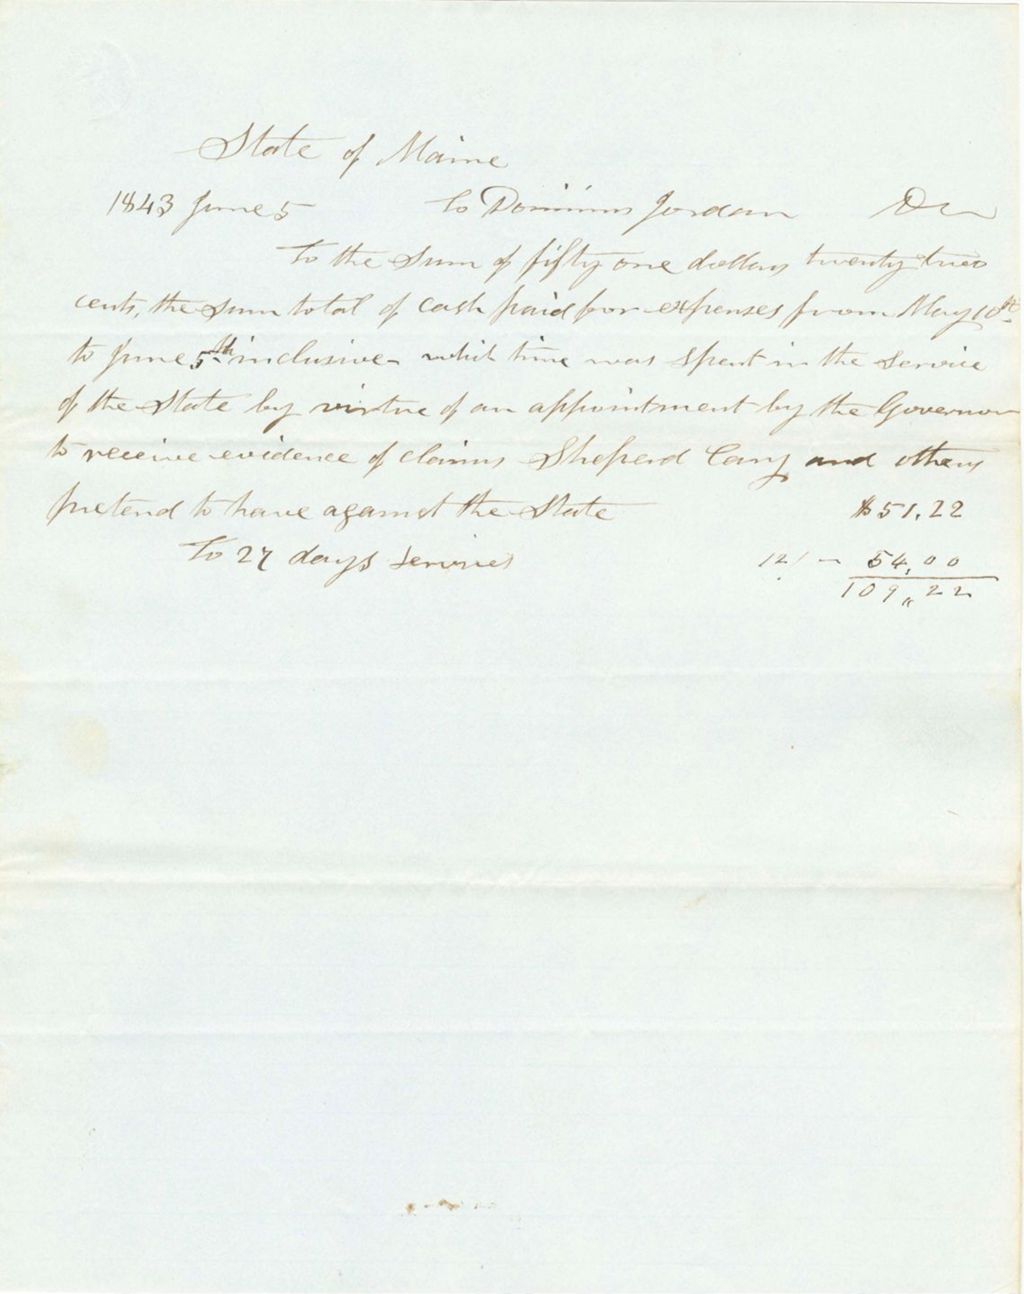 State of Maine
1843 June 5 To Dominicus Jordan Dr
To the sum of fifty one dollars twenty two
cents, the sum total of cash paid for expenses from May 10th
to June 5th inclusive - which time was spent in the service
of the State by virtue of an appointment by the Governor
to receive evidence of claims Sheperd Cary and others
pretend to have against the State $51,22
To 27 days services 12/ - 54,00
109,,22